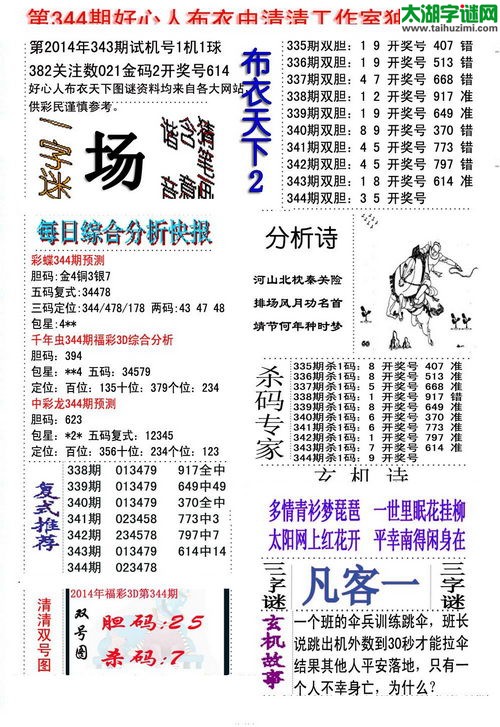 第344期好心人布衣虫清清工作室
太湖字谜网
www.taihuzimi.com
第2014年343期试机号1机1球
382关注数021金码2开奖号614
好心人布衣天下图谜资料均来自各大网站,
供彩民谨慎参考。
一字迷
场
布衣天下2
335期双胆: 1 9 开奖号 407 错
336期双胆: 1 9 开奖号 513 错
337期双胆: 4 7 开奖号 668 错
338期双胆: 1 2 开奖号 917 准
339期双胆: 1 9 开奖号 649 准
340期双胆: 8 9 开奖号 370 错
341期双胆: 4 5 开奖号 773 错
342期双胆: 4 5 开奖号 797 错
343期双胆: 1 8 开奖号 614 准
344期双胆: 3 5 开奖号
每日综合分析快报
彩蝶344期预测
胆码:金4铜3银7
五码复式:34478
三码定位:344/478/178 两码:43 47 48
包星:4**
千年虫344期福彩3D综合分析
胆码: 394
包星: **4 五码: 34579
定位: 百位: 135十位: 379个位: 234
中彩龙344期预测
胆码: 623
包星: *2* 五码复式: 12345
定位: 百位: 356十位: 234个位: 123
分析诗
河山北枕秦关险
排场风月功名首
靖节何年种时梦
杀码专家
335期杀1码: 8 开奖号 407 准
336期杀1码: 8 开奖号 513 准
337期杀1码: 5 开奖号 668 准
338期杀1码: 1 开奖号 917 错
339期杀1码: 8 开奖号 649 准
340期杀1码: 6 开奖号 370 准
341期杀1码: 6 开奖号 773 准
342期杀1码: 1 开奖号 797 准
343期杀1码: 7 开奖号 614 准
344期杀1码: 9 开奖号
复式推荐
338期 013479 917全中
339期 013479 649中49
340期 013479 370全中
341期 023458 773中3
342期 234578 797中7
343期 013479 614中14
344期 023478
玄机诗
多情青衫梦琵琶 一世里眠花挂柳
太阳网上红花开 平幸南得闲身在
清清双号图
2014年福彩3D第344期
双号图
胆码:25
杀码:7
三字谜
凡客一
三字谜
玄机故事
一个班的伞兵训练跳伞,班长
说跳出机外数到30秒才能拉伞
结果其他人平安落地,只有一
个人不幸身亡,为什么?